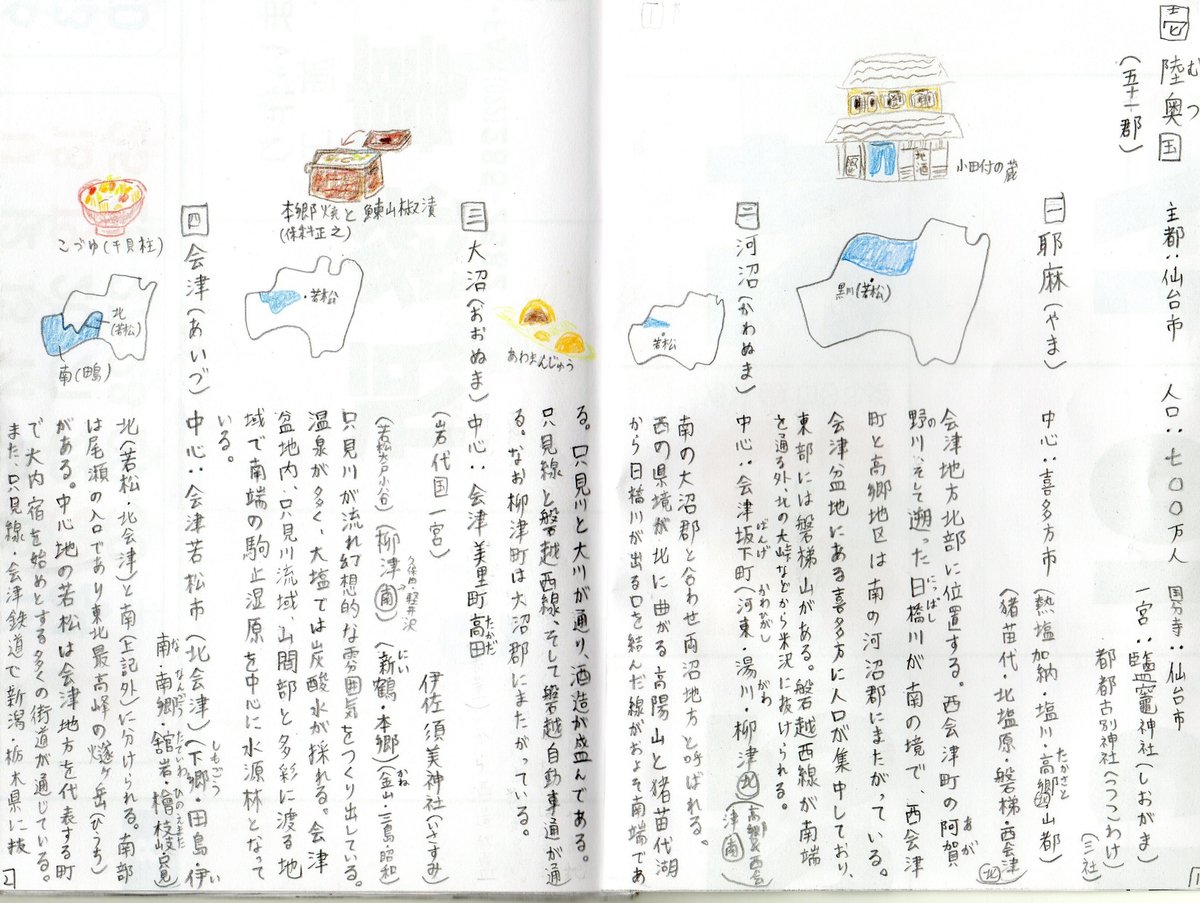 壱 陸奥国 主都:仙台市 人口:七〇〇万人 国分寺:仙台市
むつ
(五十一郡)
一宮:鹽竈神社(しおがま)
都都古別神社(つつこわけ)
(三社)
小田付の蔵
地酒
一 耶麻(やま) 中心:喜多方市(熱塩加納・塩川・高郷・山都)
たかさと
(猪苗代・北塩原・磐梯・西会津 北)
黒川(若松)
会津地方北部に位置する。西会津町の阿賀
あが
野川、そして遡った日橋川が南の境で、西会津
の にっぱし
町と高郷地区は南の河沼郡にまたがっている。
会津盆地にある喜多方に人口が集中しており、
東部には磐梯山がある。磐越西線が南端
を通る外、北の大峠などから米沢に抜けられる。
二 河沼(かわぬま) 中心:会津坂下町(河東・湯川・柳津 北)
ばんげ かわひがし がわ
(高郷&西会津 南)
若松
南の大沼郡と合わせ両沼地方と呼ばれる。
西の県境が北に曲がる高陽山と猪苗代湖
から日橋川が出る口を結んだ線がおよそ南端であ
る。只見川と大川が通り、酒造が盛んである。
只見線と磐越西線、そして磐越自動車道が通
る。なお柳津町は大沼郡にまたがっている。
あわまんじゅう
三 大沼(おおぬま) 中心:会津美里町高田
たかだ
伊佐須美神社(いさすみ)
(岩代国一宮)
(新鶴・本郷)(金山・三島・昭和)
にい かね
(若松大戸小谷)(柳津 南)
久保田・軽井沢
本郷焼と鰊山椒漬
(保科正之)
若松
只見川が流れ幻想的な雰囲気をつくり出している。
温泉が多く、大塩では炭酸水が採れる。会津
盆地内、只見川流域、山間部と多彩に渡る地
域で南端の駒止湿原を中心に水源林となって
いる。
四 会津(あいづ) 中心:会津若松市(北会津)(下郷・田島・伊
しもごう い
南・南郷・舘岩・檜枝岐・只見)
な なんごう たていわ ひのえまた
こづゆ(干貝柱)
北(若松)
南(田島)
北(若松、北会津)と南(上記外)に分けられる。南部
は尾瀬の入口であり東北最高峰の燧ヶ岳(ひうち)
がある。中心地の若松は会津地方を代表する町
で大内宿を始めとする多くの街道が通じている。
また、只見線・会津鉄道で新潟・栃木県に抜